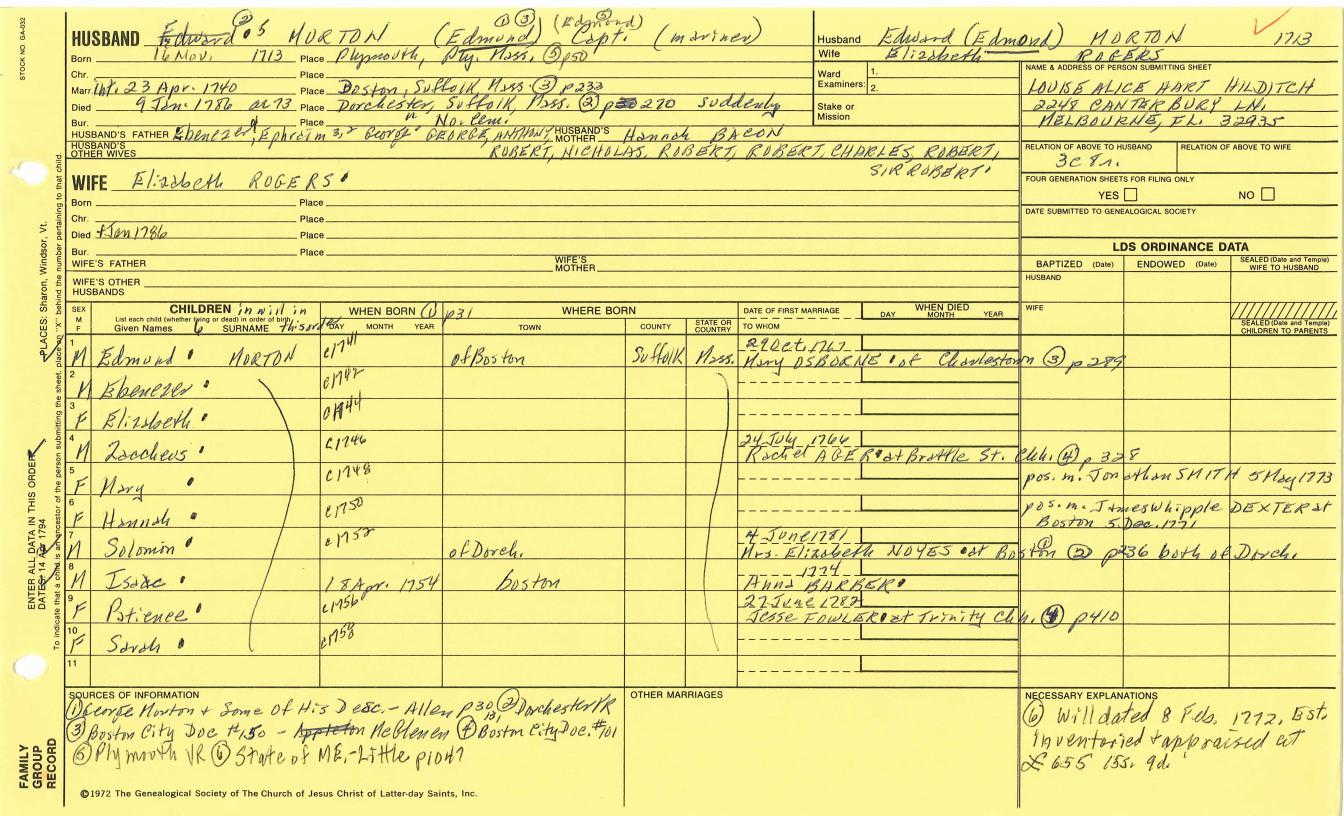 STOCK NO. GA-032
HUSBAND Edward ② 5 MORTON (Edmund) ①③ (Edmond) ⑤ Capt. (mariner)
Born 16 Nov. 1713 Place Plymouth, Ply. Mass. ⑤ p50
Chr. Place
Marr Int. 23 Apr. 1740 Place Boston, Suffolk, Mass. ③ p233
Died 9 Jan. 1786 ae 73 Place Dorchester, Suffolk, Mass. ② p 270 suddenly
Bur. Place No. Cem.
HUSBAND'S FATHER Ebenezer 4, Ephraim 3, 2 George GEORGE, ANTHONY, HUSBAND'S MOTHER Hannah BACON
HUSBAND'S OTHER WIVES ROBERT, NICHOLAS, ROBERT, ROBERT, CHARLES, ROBERT,
SIR ROBERT
WIFE Elizabeth ROGERS
Born Place
Chr. Place
Died +Jan 1786 Place
Bur. Place
WIFE'S FATHER WIFE'S MOTHER
WIFE'S OTHER HUSBANDS
Husband Edward (Edmond) MORTON 1713
Wife Elizabeth ROGERS
Ward Examiners: 1.
2.
Stake or Mission
NAME & ADDRESS OF PERSON SUBMITTING SHEET
LOUISE ALICE HART HILDITCH
2248 CANTERBURY LN.
MELBOURNE, FL. 32935
RELATION OF ABOVE TO HUSBAND RELATION OF ABOVE TO WIFE
3c 8r.
FOUR GENERATION SHEETS FOR FILING ONLY
YES NO
DATE SUBMITTED TO GENEALOGICAL SOCIETY
LDS ORDINANCE DATA
BAPTIZED (Date) ENDOWED (Date) SEALED (Date and Temple) WIFE TO HUSBAND
HUSBAND
WIFE
SEALED (Date and Temple) CHILDREN TO PARENTS
SEX M F CHILDREN in will in WHEN BORN ① p31 WHERE BORN DATE OF FIRST MARRIAGE WHEN DIED
List each child (whether living or dead) in order of birth
Given Names 6 SURNAME this order DAY MONTH YEAR TOWN COUNTY STATE OR COUNTRY TO WHOM DAY MONTH YEAR
1 M Edmund MORTON c1741 of Boston Suffolk Mass. 29 Oct. 1767 Mary OSBORNE of Charlestown ③ p289
2 M Ebenezer c1742
3 F Elizabeth c1744
4 M Zaccheus c1746 24 July 1766 Rachel AGER at Brattle St. Chh. ④ p 328
5 F Mary c1748 pos. m. Jonathan SMITH 5 May 1773
6 F Hannah c1750 pos. m. James Whipple DEXTER at Boston 5 Dec. 1771
7 M Solomon c1752 of Dorch. 4 June 1781 Mrs. Elizabeth NOYES at Boston ① ② p236 both of Dorch.
8 M Isaac 18 Apr. 1754 Boston 1774 Anna BARBER
9 F Patience c1756 27 June 1782 Jesse FOWLER at Trinity Chh. ④ p410
10 F Sarah c1758
11
SOURCES OF INFORMATION
① George Morton + Some of His Desc. - Allen p30, 31, ② Dorchester VR
③ Boston City Doc #150 - Appleton McGlenen ④ Boston City Doc. #101
⑤ Plymouth VR ⑥ State of ME. - Little p1047
OTHER MARRIAGES
NECESSARY EXPLANATIONS
⑥ Will dated 8 Feb. 1772. Est.
inventoried + appraised at
£ 655 15s. 9d.
©1972 The Genealogical Society of The Church of Jesus Christ of Latter-day Saints, Inc.
FAMILY GROUP RECORD
ENTER ALL DATA IN THIS ORDER
DATES: 14 Apr 1794
PLACES: Sharon, Windsor, Vt.
To indicate that a child is an ancestor of the person submitting the sheet, place an "X" behind the number pertaining to that child.